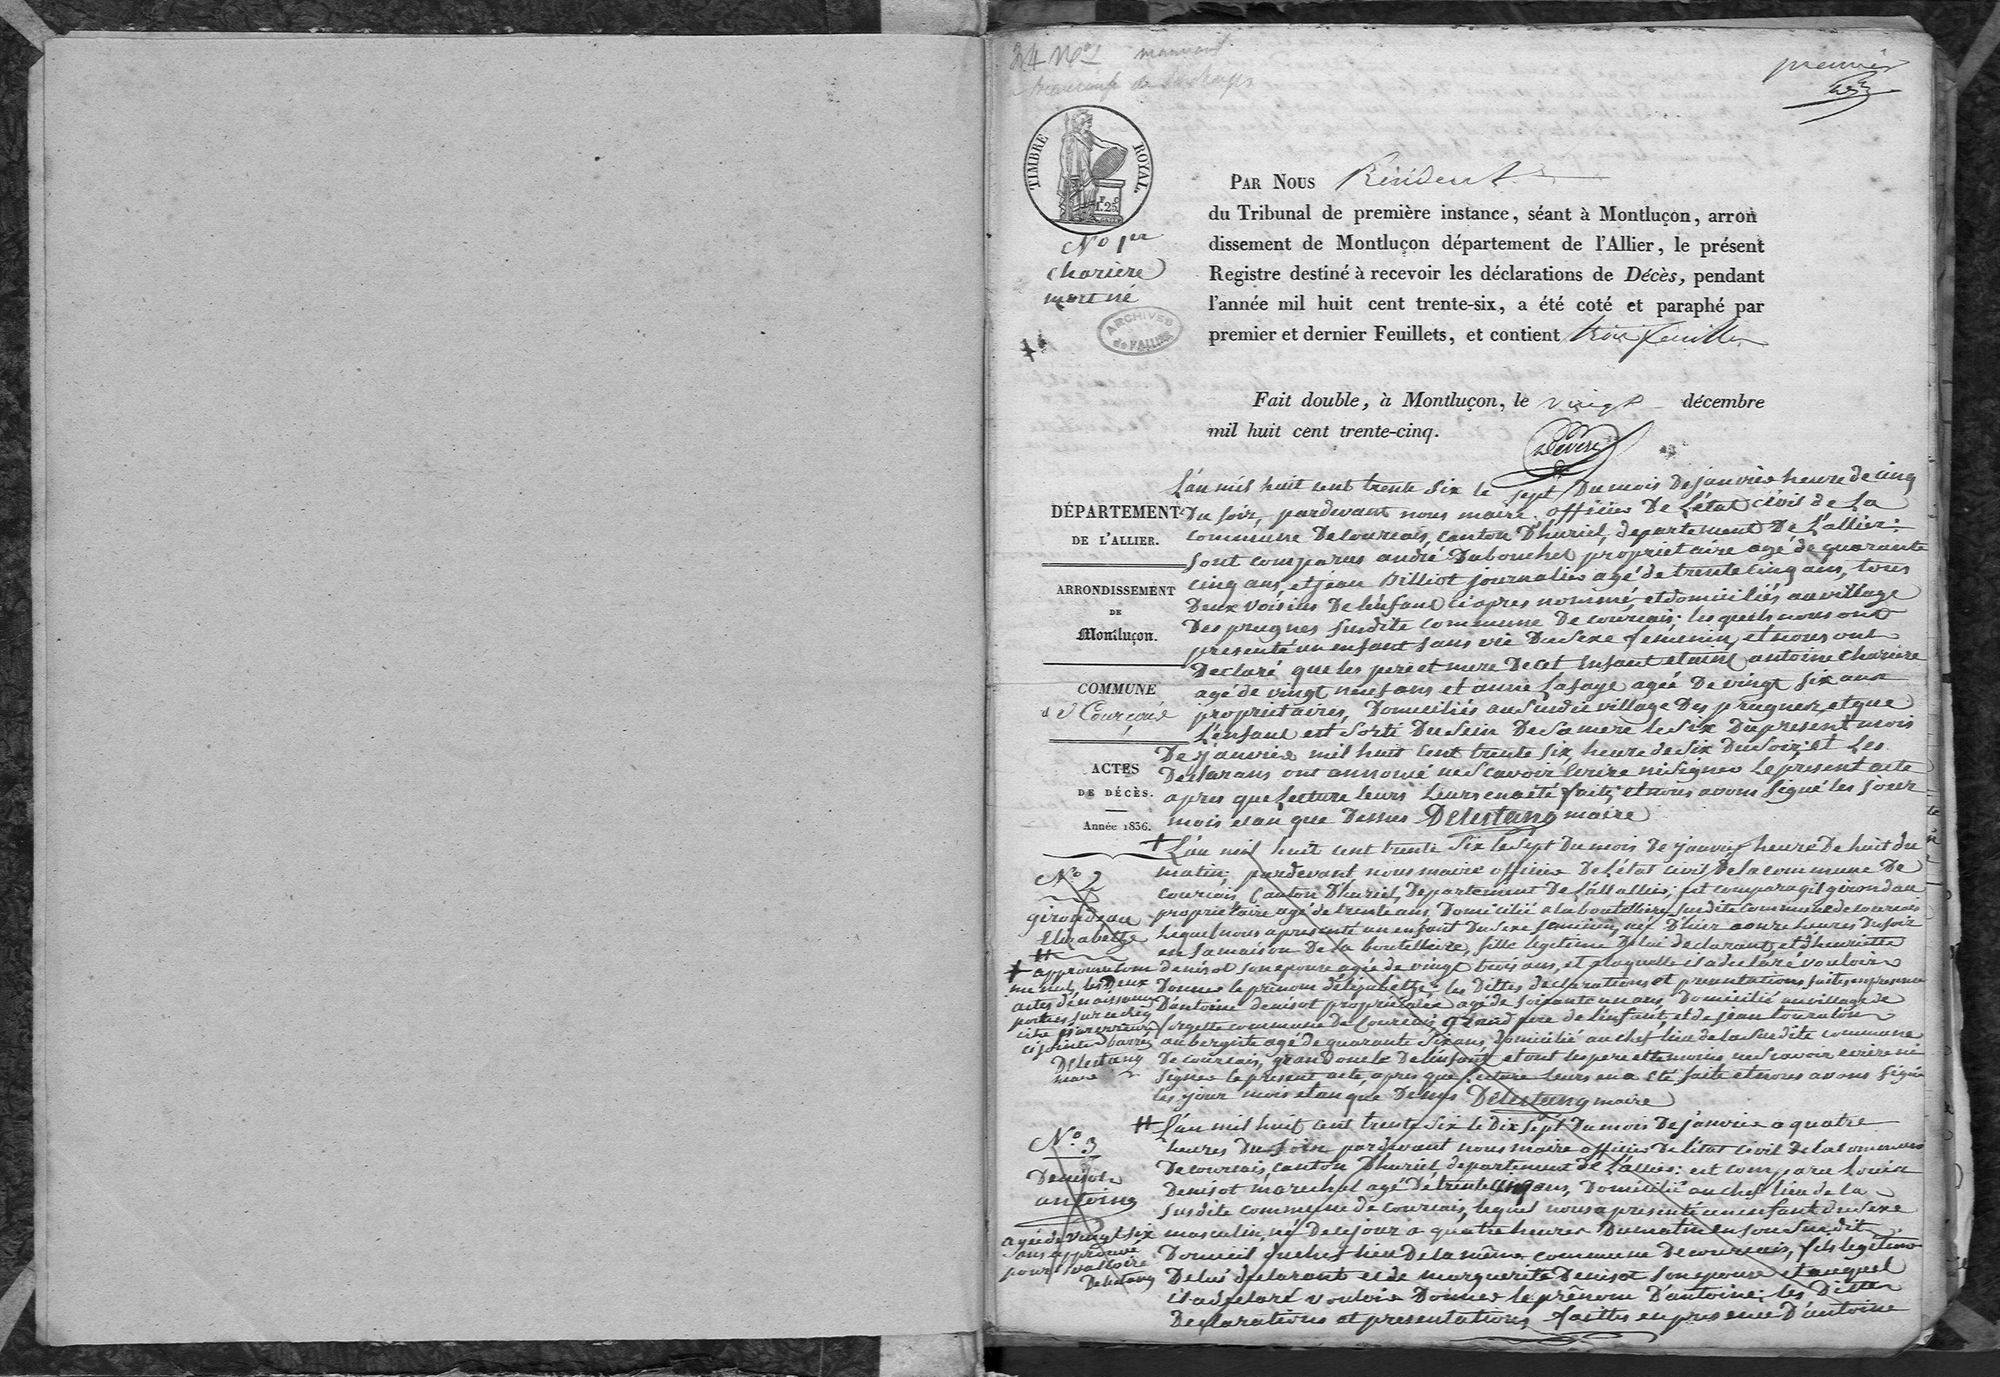 24 No 1
premier
TIMBRE ROYAL
1. 25
PAR NOUS Président
du Tribunal de première instance, séant à Montluçon, arron
dissement de Montluçon département de l'Allier, le présent
Registre destiné à recevoir les déclarations de Décès, pendant
l'année mil huit cent trente-six, a été coté et paraphé par
premier et dernier Feuillets, et contient trois feuilles
Fait double, à Montluçon, le vingt décembre
mil huit cent trente-cinq.
No 1er
Chariere
mort né
ARCHIVES
de l'ALLIER
DÉPARTEMENT
DE L'ALLIER.
ARRONDISSEMENT
DE
Montluçon.
COMMUNE
d Courçais
ACTES
DE DÉCÈS.
Année 1836.
L'an mil huit cent trente six le sept Du mois De janvier heure de cinq
Du soir, pardevant nous maire officier De L'état civil de La
commune De courcais, canton D'huriel, departement De L'allier:
sont comparus andré Dubouchet proprietaire agé de quarante
cinq ans, et jean Billiot journalier agé de trente cinq ans, tous
Deux voisins De L'enfant ci apres nommé, et domiciliés au village
Des prugnes susdite commune De courcais; les quels nous ont
presenté un enfant sans vie Du sexe femenin, et nous ont
Declaré que les pere et mere De cet enfant etaint antoine chariere
agé de vingt neuf ans et anne Lafaye agée De vingt six ans
proprietaires, Domiciliés au susdit village Des prugnes, et que
L'enfant est sorti Du sein De sa mere le six Du present mois
De janvier mil huit cent trente six, heure de six Du soir: et Les
Declarans ont annoncé ne scavoir Ecrire ni signer Le present acte
apres que Lecture leurs Leurs en a été faite, et nous avons signé les jour
mois et an que Dessus Delestang maire
+ L'an mil huit cent trente six le sept Du mois De janvier heure De huit du
matin, pardevant nous maire officier De L'état civil De la commune De
courcais, Canton D'huriel, Departement De L'allier; est comparu gil girondeau
proprietaire agé de trente ans, Domicilié a la bouteliere susdite commune de courcais
Lequel nous a presenté un enfant Du sexe femenin, né D'hier a onze heures Du soir
en sa maison De la bouteliere, fille legitime De lui declarant, et d'henriette
denisot son epouse agée de vingt trois ans, et a laquelle il a declaré vouloir
Donner le prénom d'Elizabethe; les Dittes declarations et presentations faites en presence
D'antoine denisot proprietaire agé de soixante un ans, Domicilié au village de
forgette commune de Courcais, grand pere de L'enfant, et de jean touraton
aubergiste agé de quarante six ans, domicilié au chef lieu de la susdite commune
De courcais, grand oncle De L'enfant, et ont les pere et temoins ne scavoir ecrire ni
signer le present acte, apres que lecture leurs en a été faite et nous avons signé
les jour mois et an que Dessus Delestang maire
No 2
girondeau
Elizabethe
# L'an mil huit cent trente six le Dix sept Du mois De janvier a quatre
heures Du soir pardevant nous maire officier De l'état civil De la commune
De courcais, canton D'huriel, departement de L'allier: est comparu Louis
Denisot marechal agé De trente cinq ans, Domicilié au chef lieu de la
susdite commune de courcais, lequel nous a presenté un enfant Du sexe
masculin, né De ce jour a quatre heures Du matin en son susdit
Domicil au chef lieu De la même commune De courcais, fils legitime
De lui declarant et de marguerite Denisot son epouse et auquel
il a declaré vouloir Donner le prénom D'antoine; les Dittes
Declarations et presentations faittes en presence D'antoine
No 3
Denisot
antoine
+ approuvé comme nul, les deux
actes de naissance
portés sur ce
ci jointe barrés
Delestang
maire
agée de vingt six
ans approuvé
pour valloir
Delestang